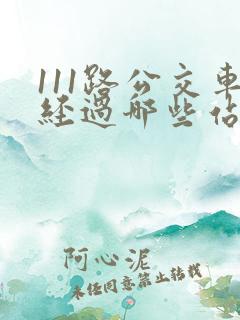 111路公交車
經過哪些佔
阿心泥
未经同意禁止转载